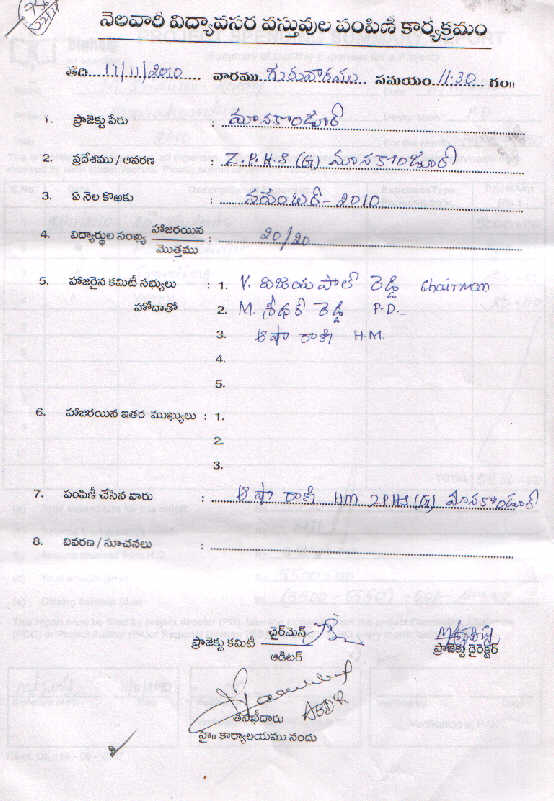 నెలవారీ విద్యావసర వస్తువుల పంపిణి కార్యక్రమం
తేది. 11/11/2010 వారము గురువారము సమయం. 11:30 గం||
1. ప్రాజెక్టు పేరు : మానకొండూర్
2. ప్రదేశము / ఆవరణ : Z.P.H.S (G) మానకొండూర్
3. ఏ నెల కొఱకు : నవంబర్ - 2010
4. విద్యార్థుల సంఖ్య హాజరయిన / మొత్తము : 20/20
5. హాజరైన కమిటీ సభ్యులు : 1. V. విజయపాల్ రెడ్డి Chairman
హోదాతో 2. M. శ్రీధర్ రెడ్డి P.D.
3. ఆషా రాణి H.M.
4.
5.
6. హాజరయిన ఇతర ముఖ్యులు : 1.
2.
3.
7. పంపిణీ చేసిన వారు : ఆషా రాణి HM ZPHS (G) మానకొండూర్
8. వివరణ / సూచనలు :
ప్రాజెక్టు కమిటీ చైర్‌మెన్ ప్రాజెక్టు డైరెక్టర్
ఆడిటర్
తనిఖీదారు
హై|| కార్యాలయము నందు